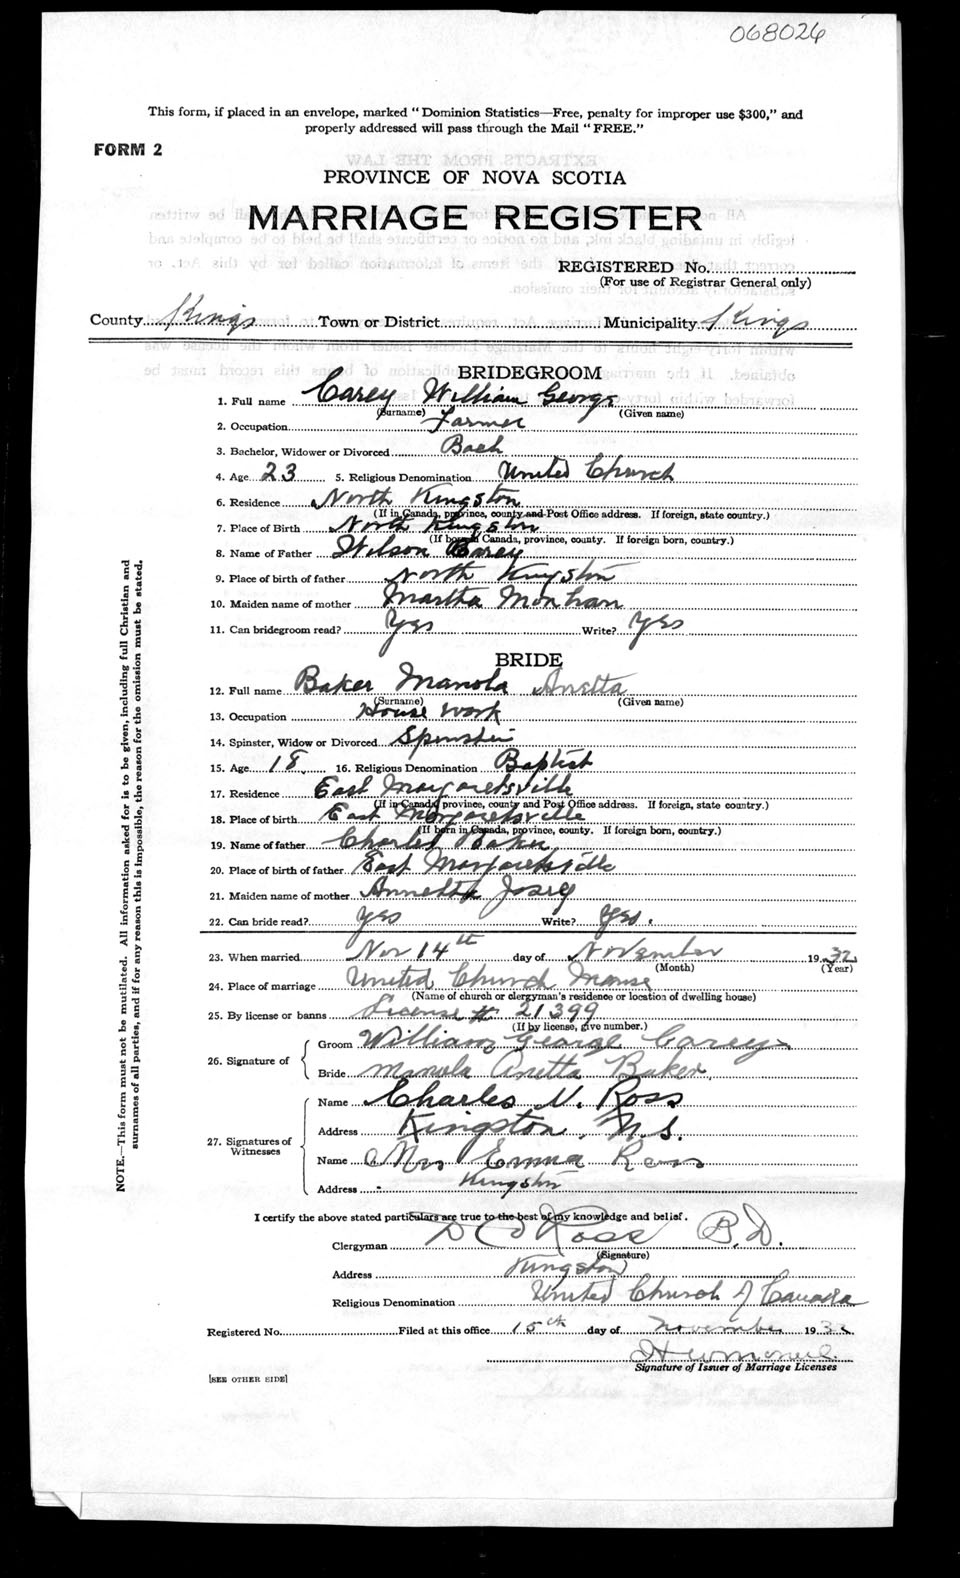 068026
This form, if placed in an envelope, marked "Dominion Statistics—Free, penalty for improper use $300," and
properly addressed will pass through the Mail "FREE."
FORM 2
PROVINCE OF NOVA SCOTIA
MARRIAGE REGISTER
REGISTERED No.
(For use of Registrar General only)
County Kings Town or District Municipality Kings
BRIDEGROOM
1. Full name Carey William George
(Surname) (Given name)
2. Occupation Farmer
3. Bachelor, Widower or Divorced Bach
4. Age 23 5. Religious Denomination United Church
6. Residence North Kingston
(If in Canada, province, county and Post Office address. If foreign, state country.)
7. Place of Birth North Kingston
(If born in Canada, province, county. If foreign born, country.)
8. Name of Father Wilson Carey
9. Place of birth of father North Kingston
10. Maiden name of mother Martha Monhan
11. Can bridegroom read? Yes Write? Yes
BRIDE
12. Full name Baker Manola Anetta
(Surname) (Given name)
13. Occupation House Work
14. Spinster, Widow or Divorced Spinster
15. Age 18 16. Religious Denomination Baptist
17. Residence East Margaretsville
(If in Canada, province, county and Post Office address. If foreign, state country.)
18. Place of birth East Margaretsville
(If born in Canada, province, county. If foreign born, country.)
19. Name of father Charles Baker
20. Place of birth of father East Margaretsville
21. Maiden name of mother Annetta
22. Can bride read? Yes Write? Yes.
23. When married Nov 14th day of November 1932
(Month) (Year)
24. Place of marriage United Church Manse
(Name of church or clergyman's residence or location of dwelling house)
25. By license or banns License # 21399
(If by license, give number.)
26. Signature of
Groom William George Carey
Bride Manola Anetta Baker
27. Signatures of Witnesses
Name Charles N. Ross
Address Kingston, N.S.
Name Mrs Emma Ross
Address Kingston
I certify the above stated particulars are true to the best of my knowledge and belief.
Clergyman Ross B.D.
(Signature)
Address Kingston
Religious Denomination United Church of Canada
Registered No. Filed at this office 15th day of November 1932
Signature of Issuer of Marriage Licenses
[SEE OTHER SIDE]
NOTE.—This form must not be mutilated. All information asked for is to be given, including full Christian and
surnames of all parties, and if for any reason this is impossible, the reason for the omission must be stated.